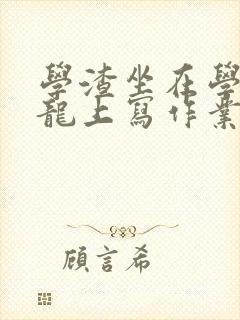 學渣坐在學
龍上寫作業
顧言希